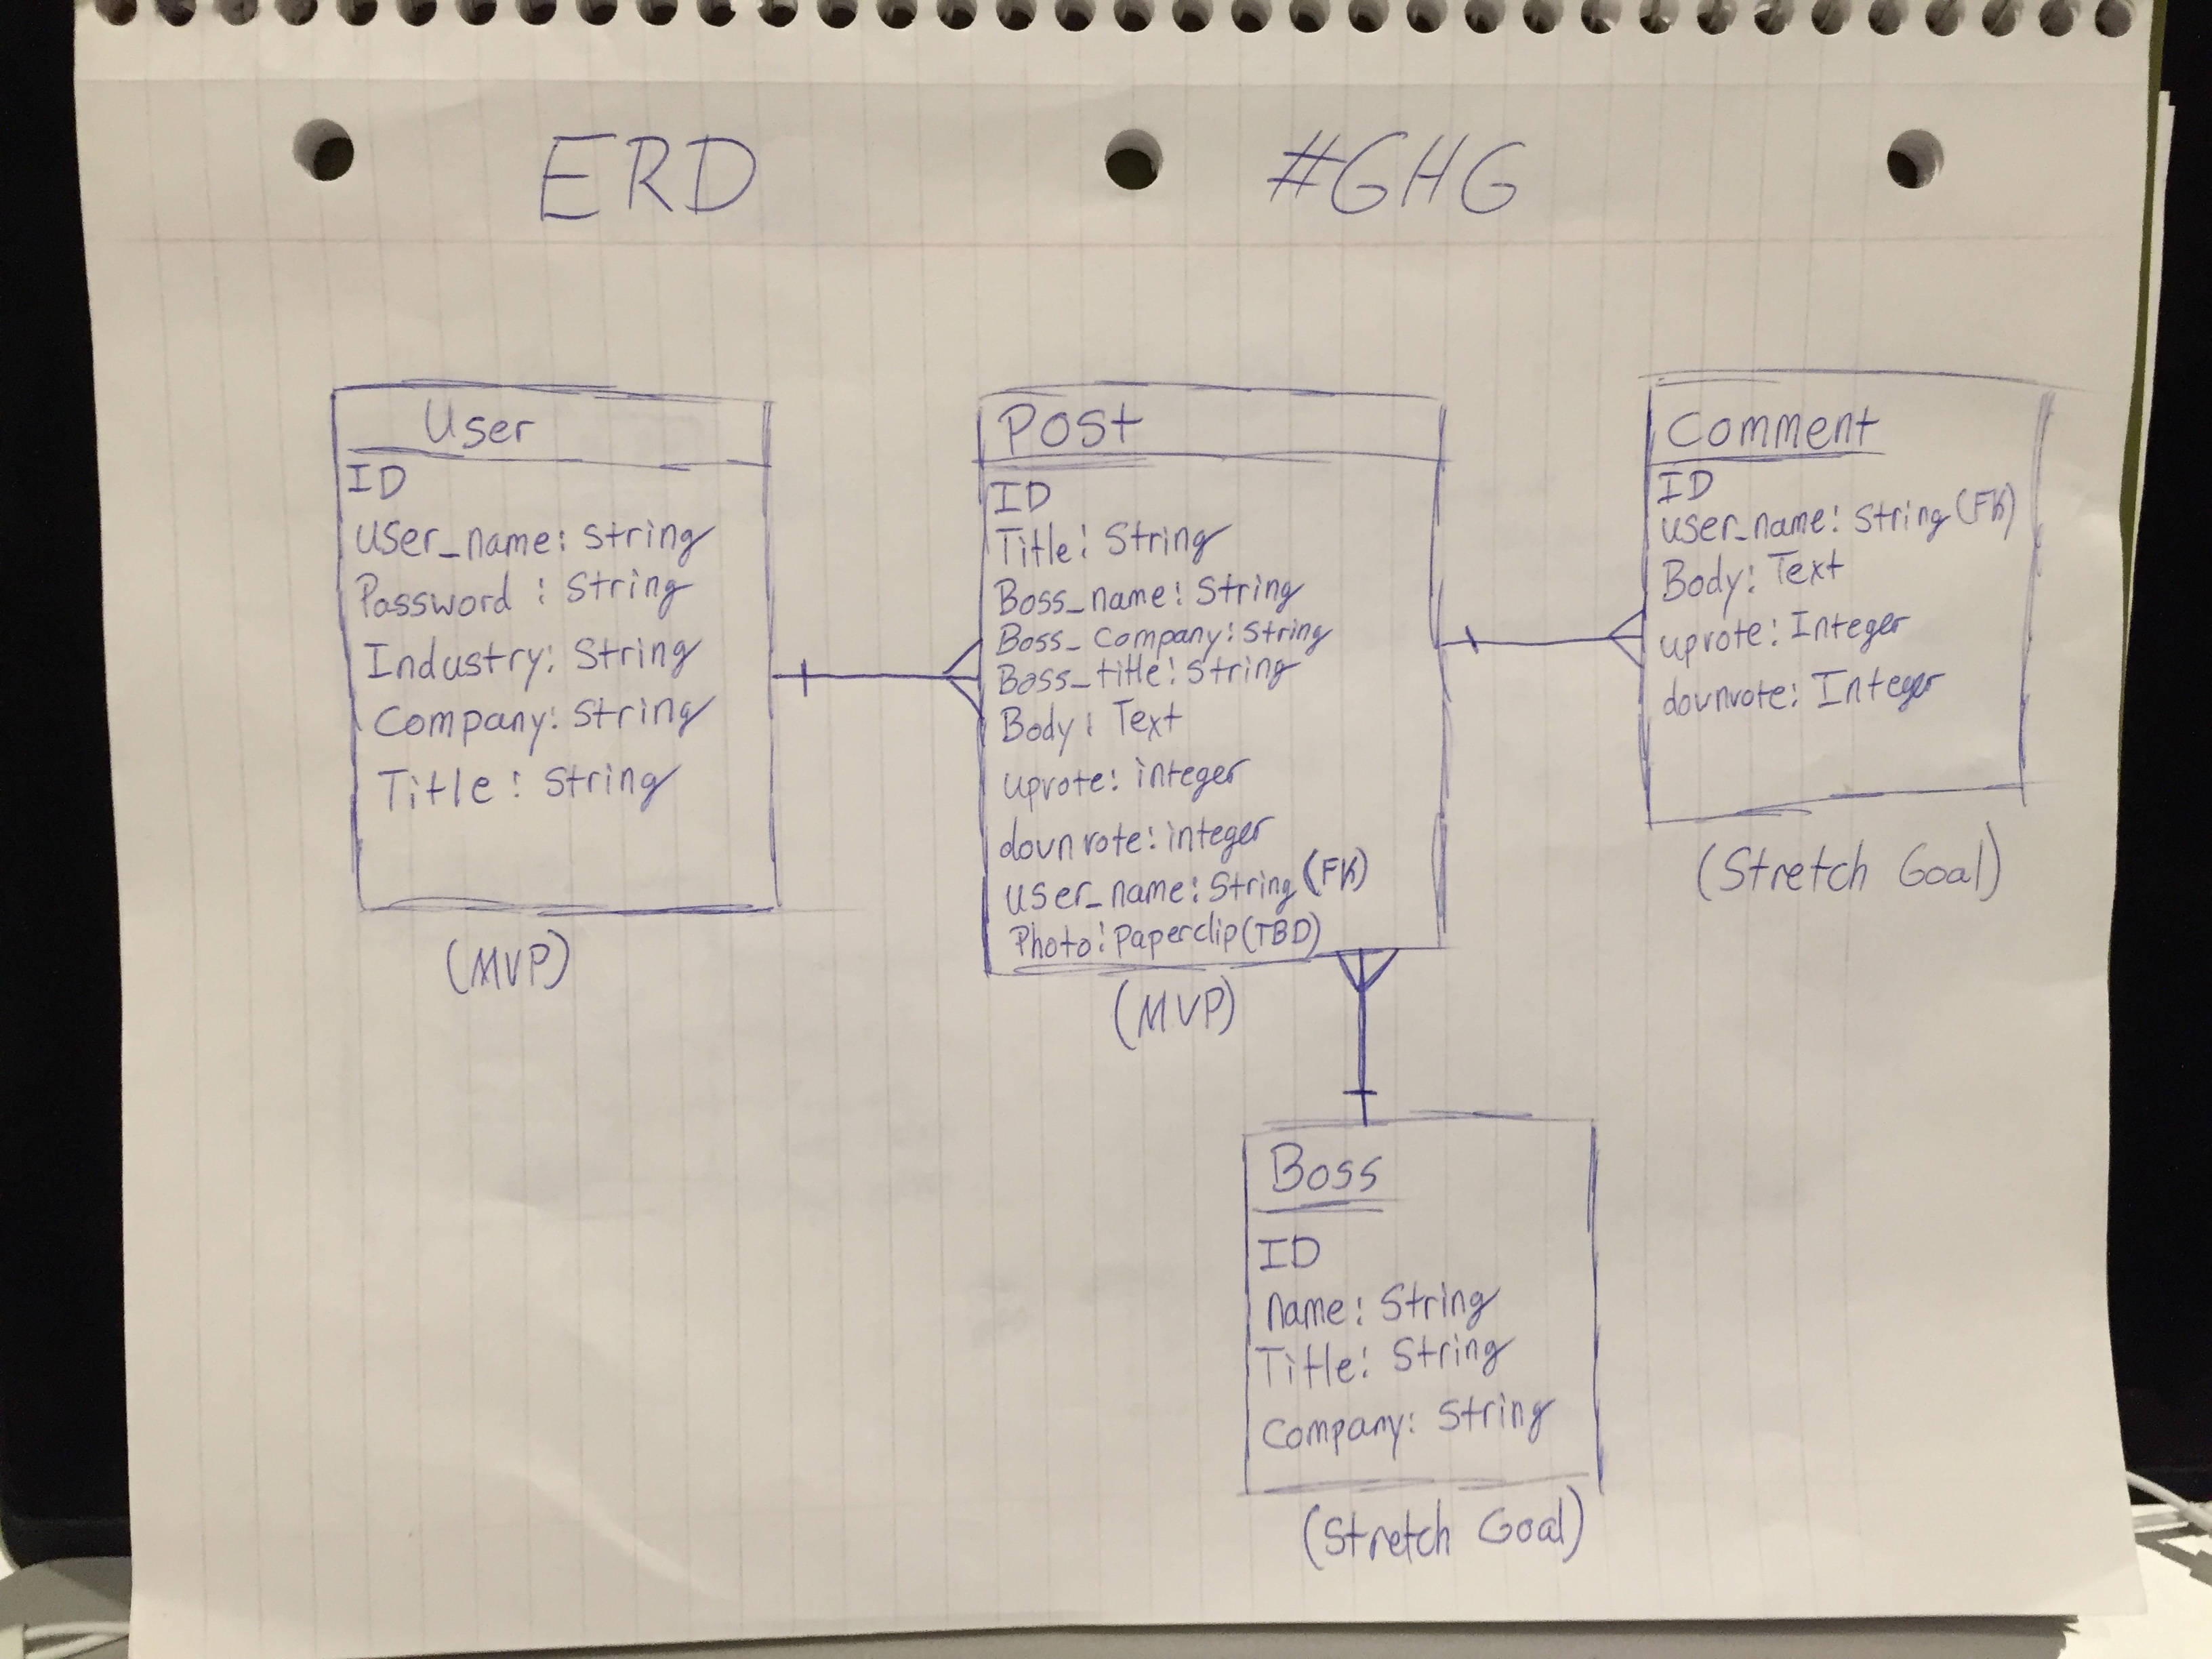 ERD #GHG
User
ID
user_name: String
Password: String
Industry: String
Company: String
Title: String
(MVP)
Post
ID
Title: String
Boss_name: String
Boss_company: String
Boss_title: String
Body: Text
upvote: integer
downvote: integer
user_name: String (FK)
Photo: paperclip (TBD)
(MVP)
Comment
ID
user_name: String (FK)
Body: Text
upvote: Integer
downvote: Integer
(Stretch Goal)
Boss
ID
name: String
Title: String
Company: String
(Stretch Goal)